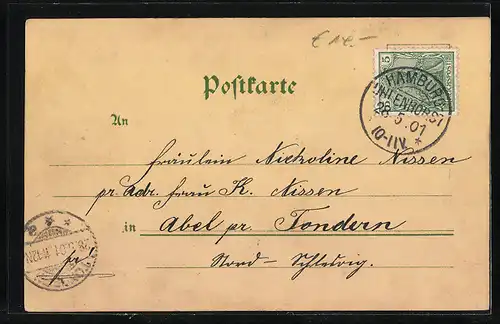 € 14.-
Postkarte
5
HAMBURG
UHLENHORST
26.5.01
10-11V.
*
An
Fräulein Nicholine Nissen
pr. Adr. Frau K. Nissen
in Abel pr. Tondern
Nord-Schleswig.